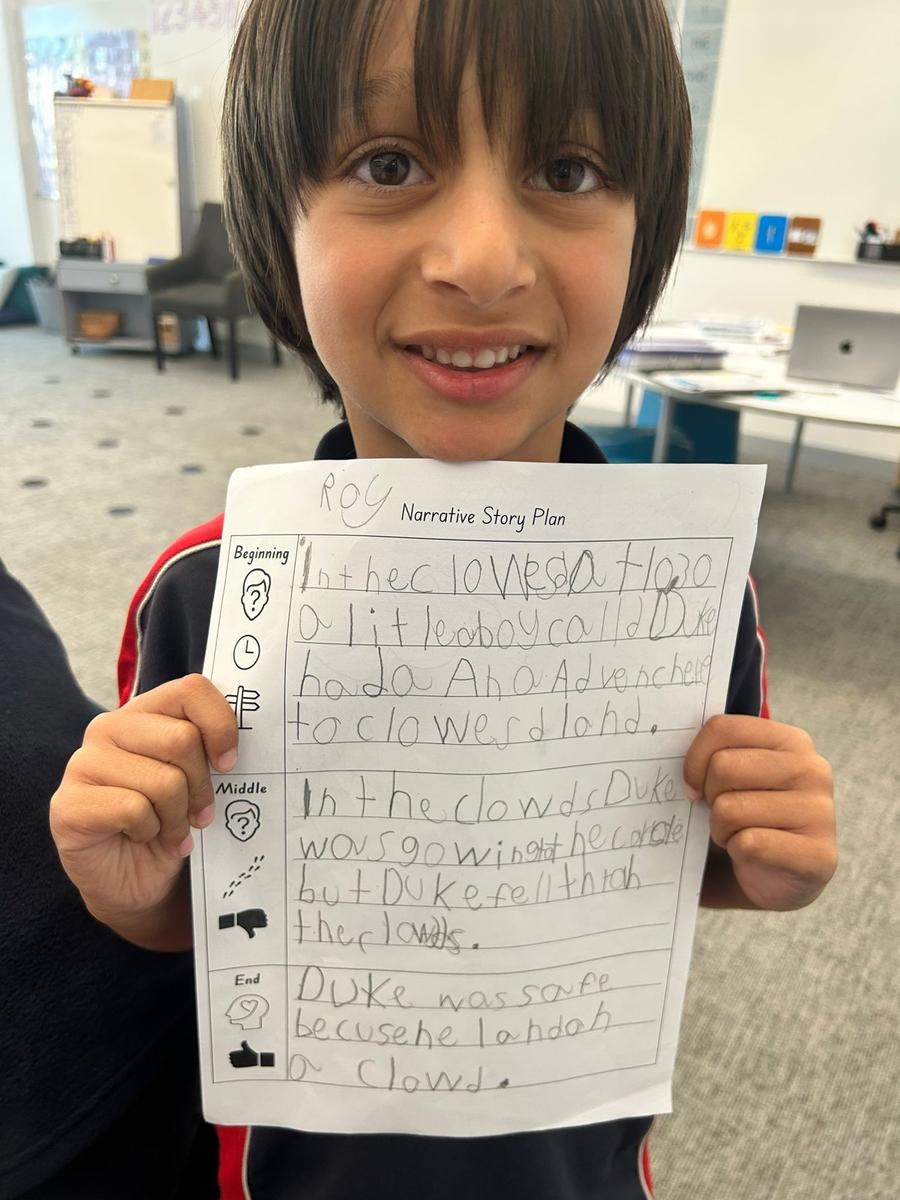 Roy
Narrative Story Plan
Beginning
In the clowesd at 1030
a little aboy calld Duke
had a An a Advenchere
to clowesd land.
Middle
In the clowds Duke
was gowing to the
but Duke fell thrah
the clowds.
End
Duke was safe
becuse he landah
a clowd.